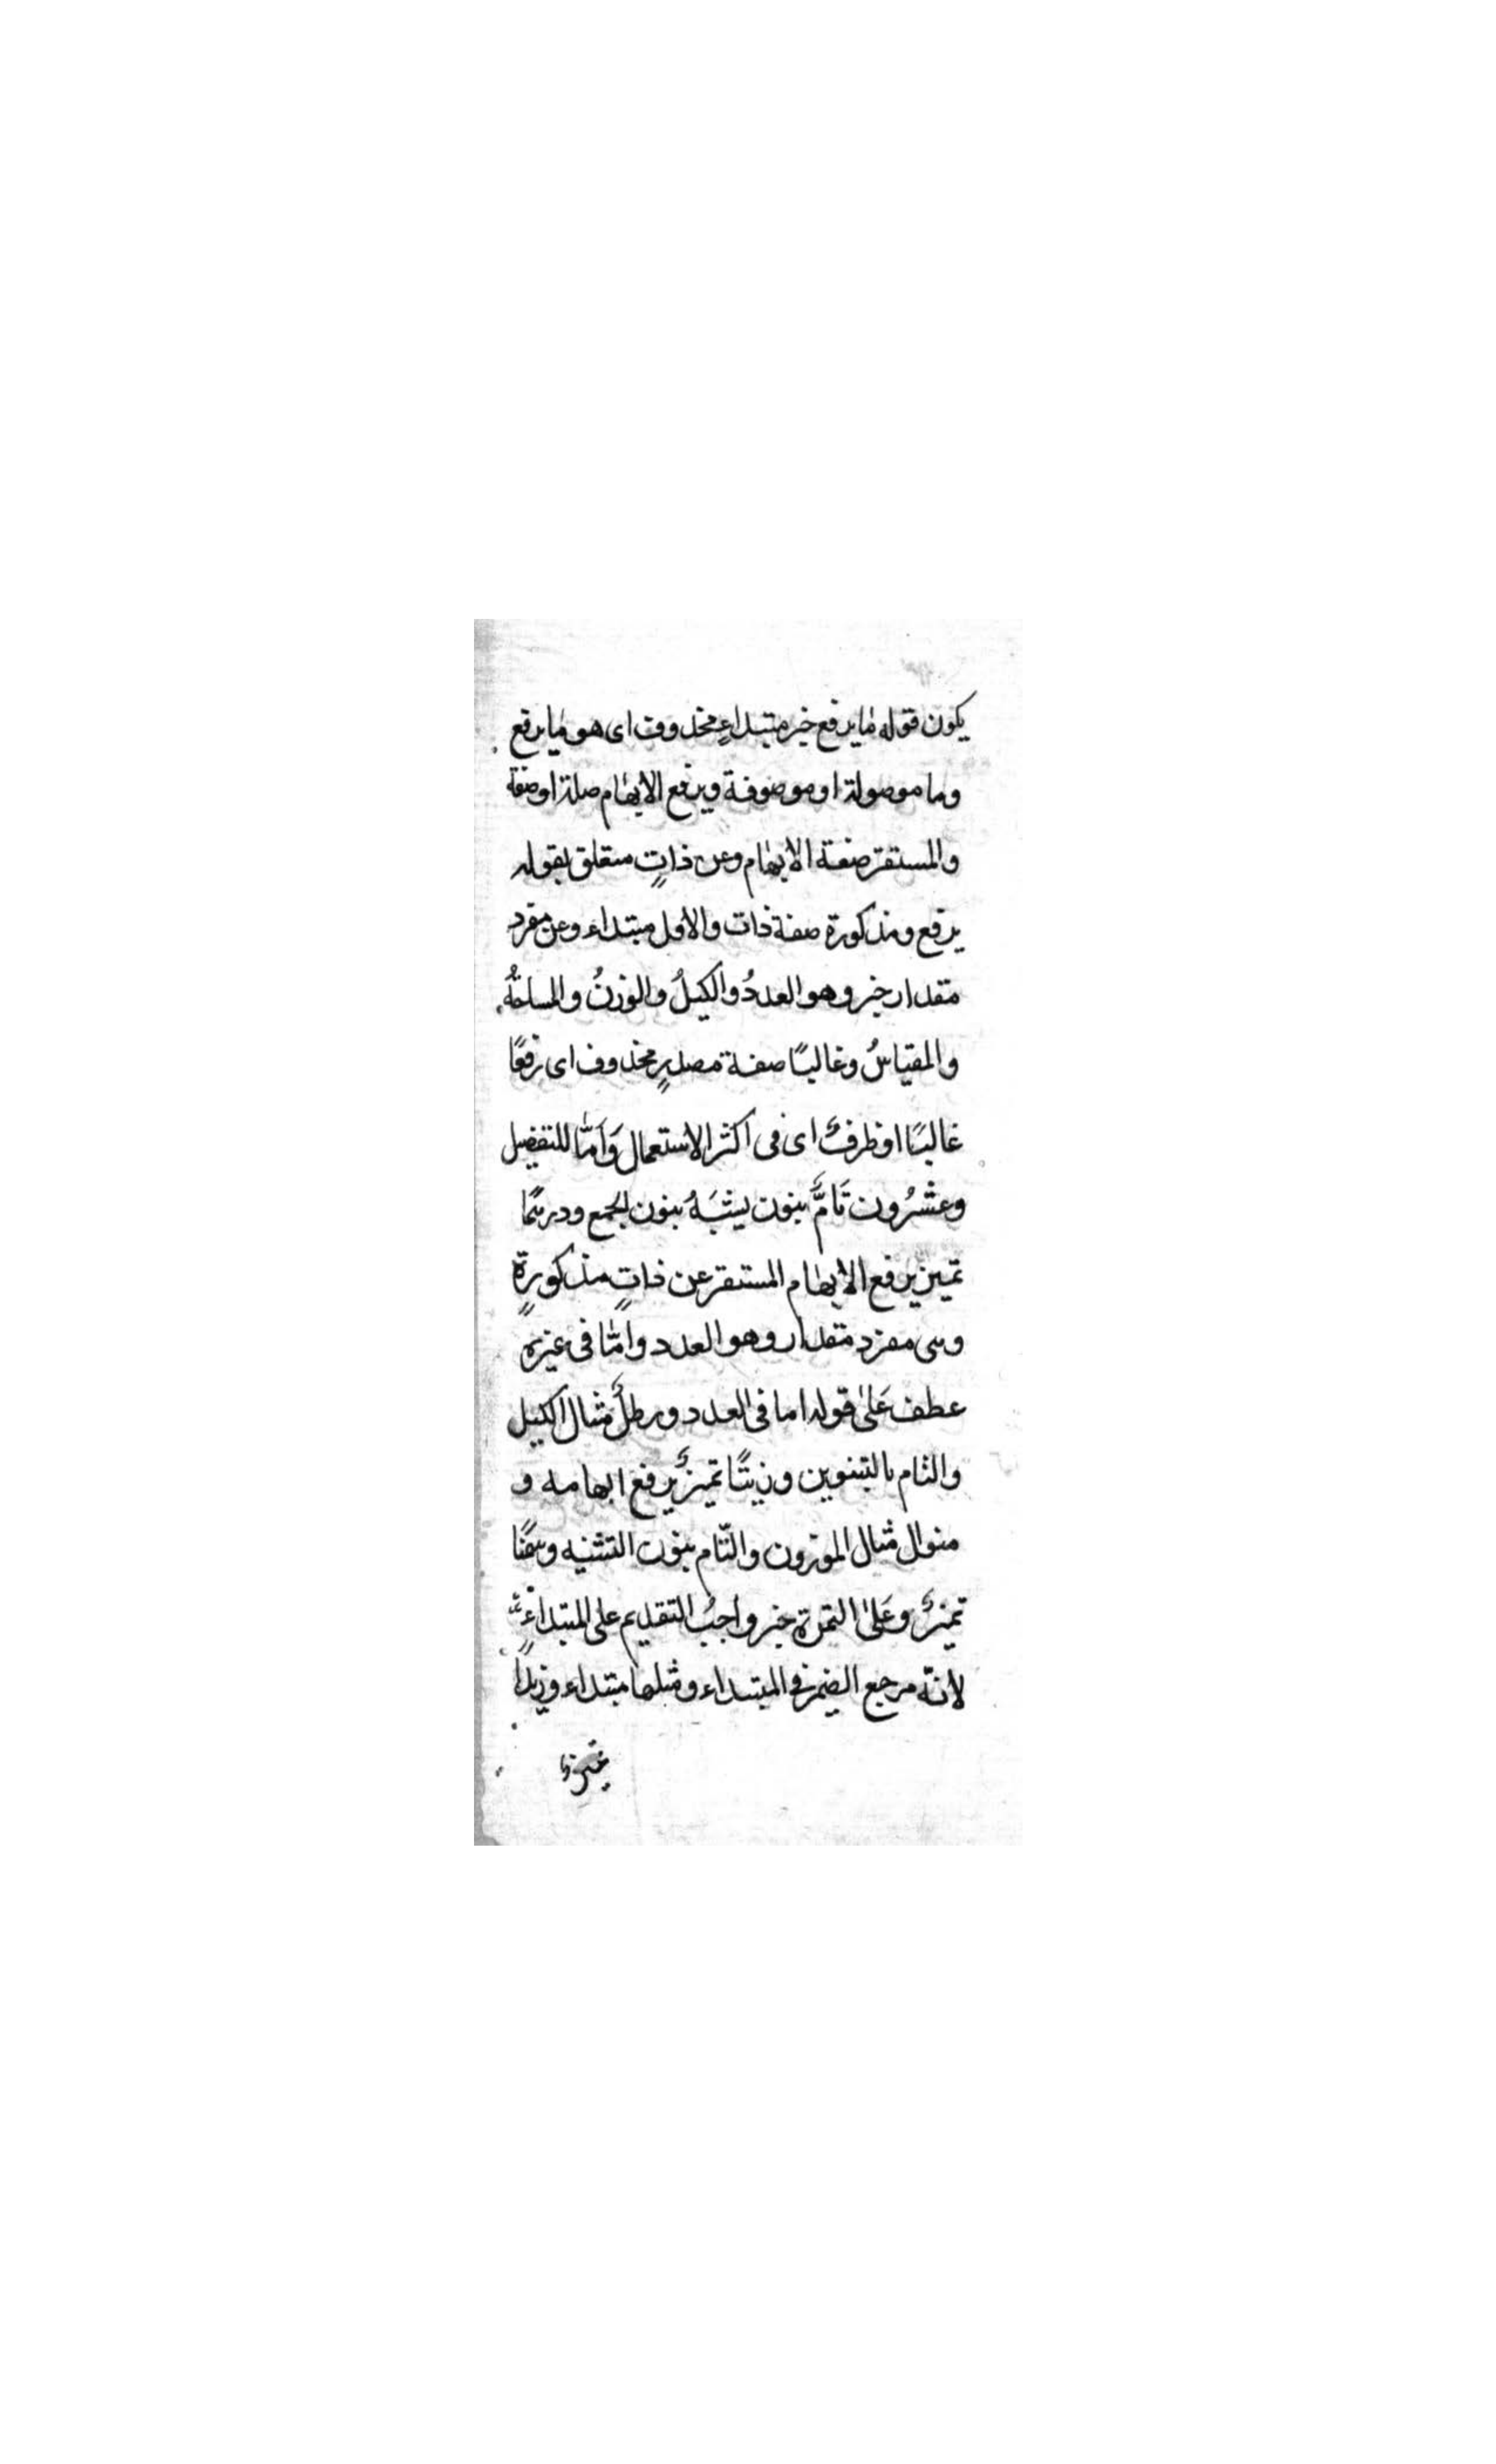 يكون قوله ما يرفع خبر مبتداءٍ محذوف اى هو ما يرفع
وما موصولة او موصوفة ويرفع الابهام صلة او صفة
والمستقر صفة الابهام وعن ذاتٍ متعلق بقوله
يرفع ومذكورة صفة ذات والاول مبتداء وعن مفرد
مقدار خبر وهو العددُ والكيلُ والوزنُ والمساحةُ
والمقياسُ وغالبًا صفة مصدرٍ محذوف اى رفعًا
غالبًا او ظرفٌ اى فى اكثر الاستعمال وَاَمّا للتفضيل
وعشرُون تَامٌّ بنون يشبَهُ بنون الجمع ودرهمًا
تمييز يرفع الابهام المستقر عن ذاتٍ مذكورةٍ
وهى مفرد مقدار وهو العدد وامّا فى غيره
عطف عَلىٰ قوله اما فى العدد ورطلٌ مثال الكيل
والتام بالتنوين وزيتًا تميزٌ يرفع ابهامه و
منوال مثال الموزون والتّام بنون التثنيه وسمنًا
تميزٌ وعَلىٰ التمرة خبر واجبُ التقديم على المبتداء
لانّه مرجع الضمير فى المبتداء ومثلها مبتداء وزبدًا
تميزٌ